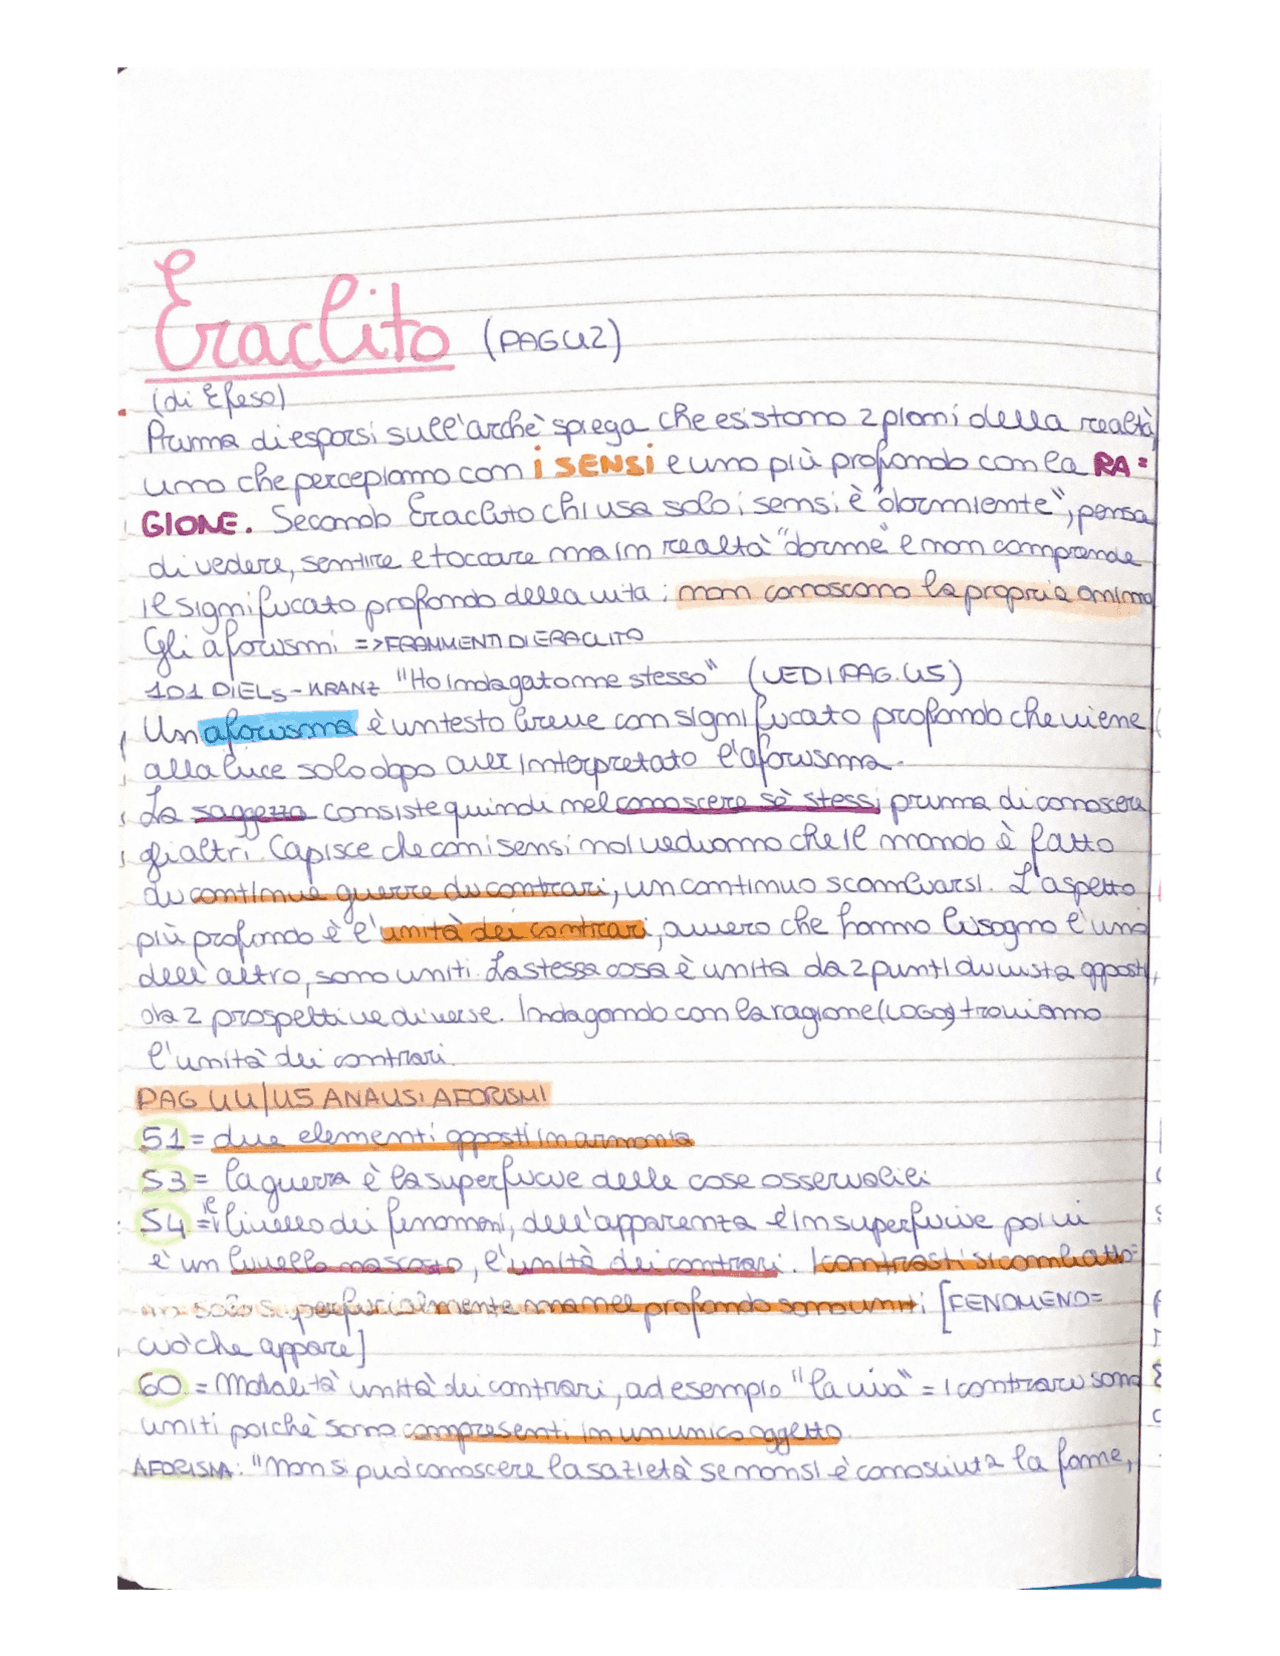 Eraclito (PAG 42)
(di Efeso)
Prima di esporsi sull'archè spiega che esistono 2 piani della realtà
uno che percepiamo con i SENSI e uno più profondo con la RA=
GIONE. Secondo Eraclito chi usa solo i sensi è "dormiente", pensa
di vedere, sentire e toccare ma in realtà "dorme" e non comprende
il significato profondo della vita; non conoscono la propria anima
Gli aforismi => FRAMMENTI DI ERACLITO
101 DIELS-KRANZ "Ho indagato me stesso" (VEDI PAG. 45)
Un aforisma è un testo breve con significato profondo che viene
alla luce solo dopo aver interpretato l'aforisma.
La saggezza consiste quindi nel conoscere sè stessi prima di conoscere
gli altri. Capisce che con i sensi noi vediamo che il mondo è fatto
di continue guerre di contrari, un continuo scambiarsi. L'aspetto
più profondo è l'unità dei contrari, ovvero che hanno bisogno l'uno
dell'altro, sono uniti. La stessa cosa è unita da 2 punti di vista opposti,
da 2 prospettive diverse. Indagando con la ragione (LOGOS) troviamo
l'unità dei contrari.
PAG 44/45 ANALISI AFORISMI
51 = due elementi opposti in armonia
53 = la guerra è la superficie delle cose osservabili
54 = il livello dei fenomeni, dell'apparenza è in superficie poi vi
è un livello nascosto, l'unità dei contrari. I contrasti si combatto=
no solo superficialmente ma nel profondo sono uniti [FENOMENO=
ciò che appare]
60 = Modalità unità dei contrari, ad esempio "la via" = i contrari sono
uniti poichè sono compresenti in un unico oggetto.
AFORISMA: "Non si può conoscere la sazietà se non si è conosciuta la fame,